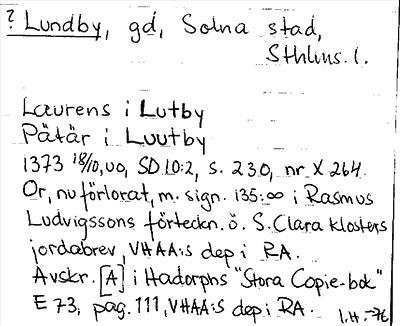 ? Lundby, gd, Solna stad,
Sthlms. l.
Laurens i Lutby
Pätär i Luutby
1373 18/10, uo, SD 10:2, s. 230, nr X 264.
Or, nu förlorat, m. sign. 135:∞ i Rasmus
Ludvigssons förteckn. ö. S. Clara klosters
jordabrev, VHAA:s dep i RA.
Avskr. [A] i Hadorphs "Stora Copie-bok"
E 73, pag. 111, VHAA:s dep i RA.
I.H. -76